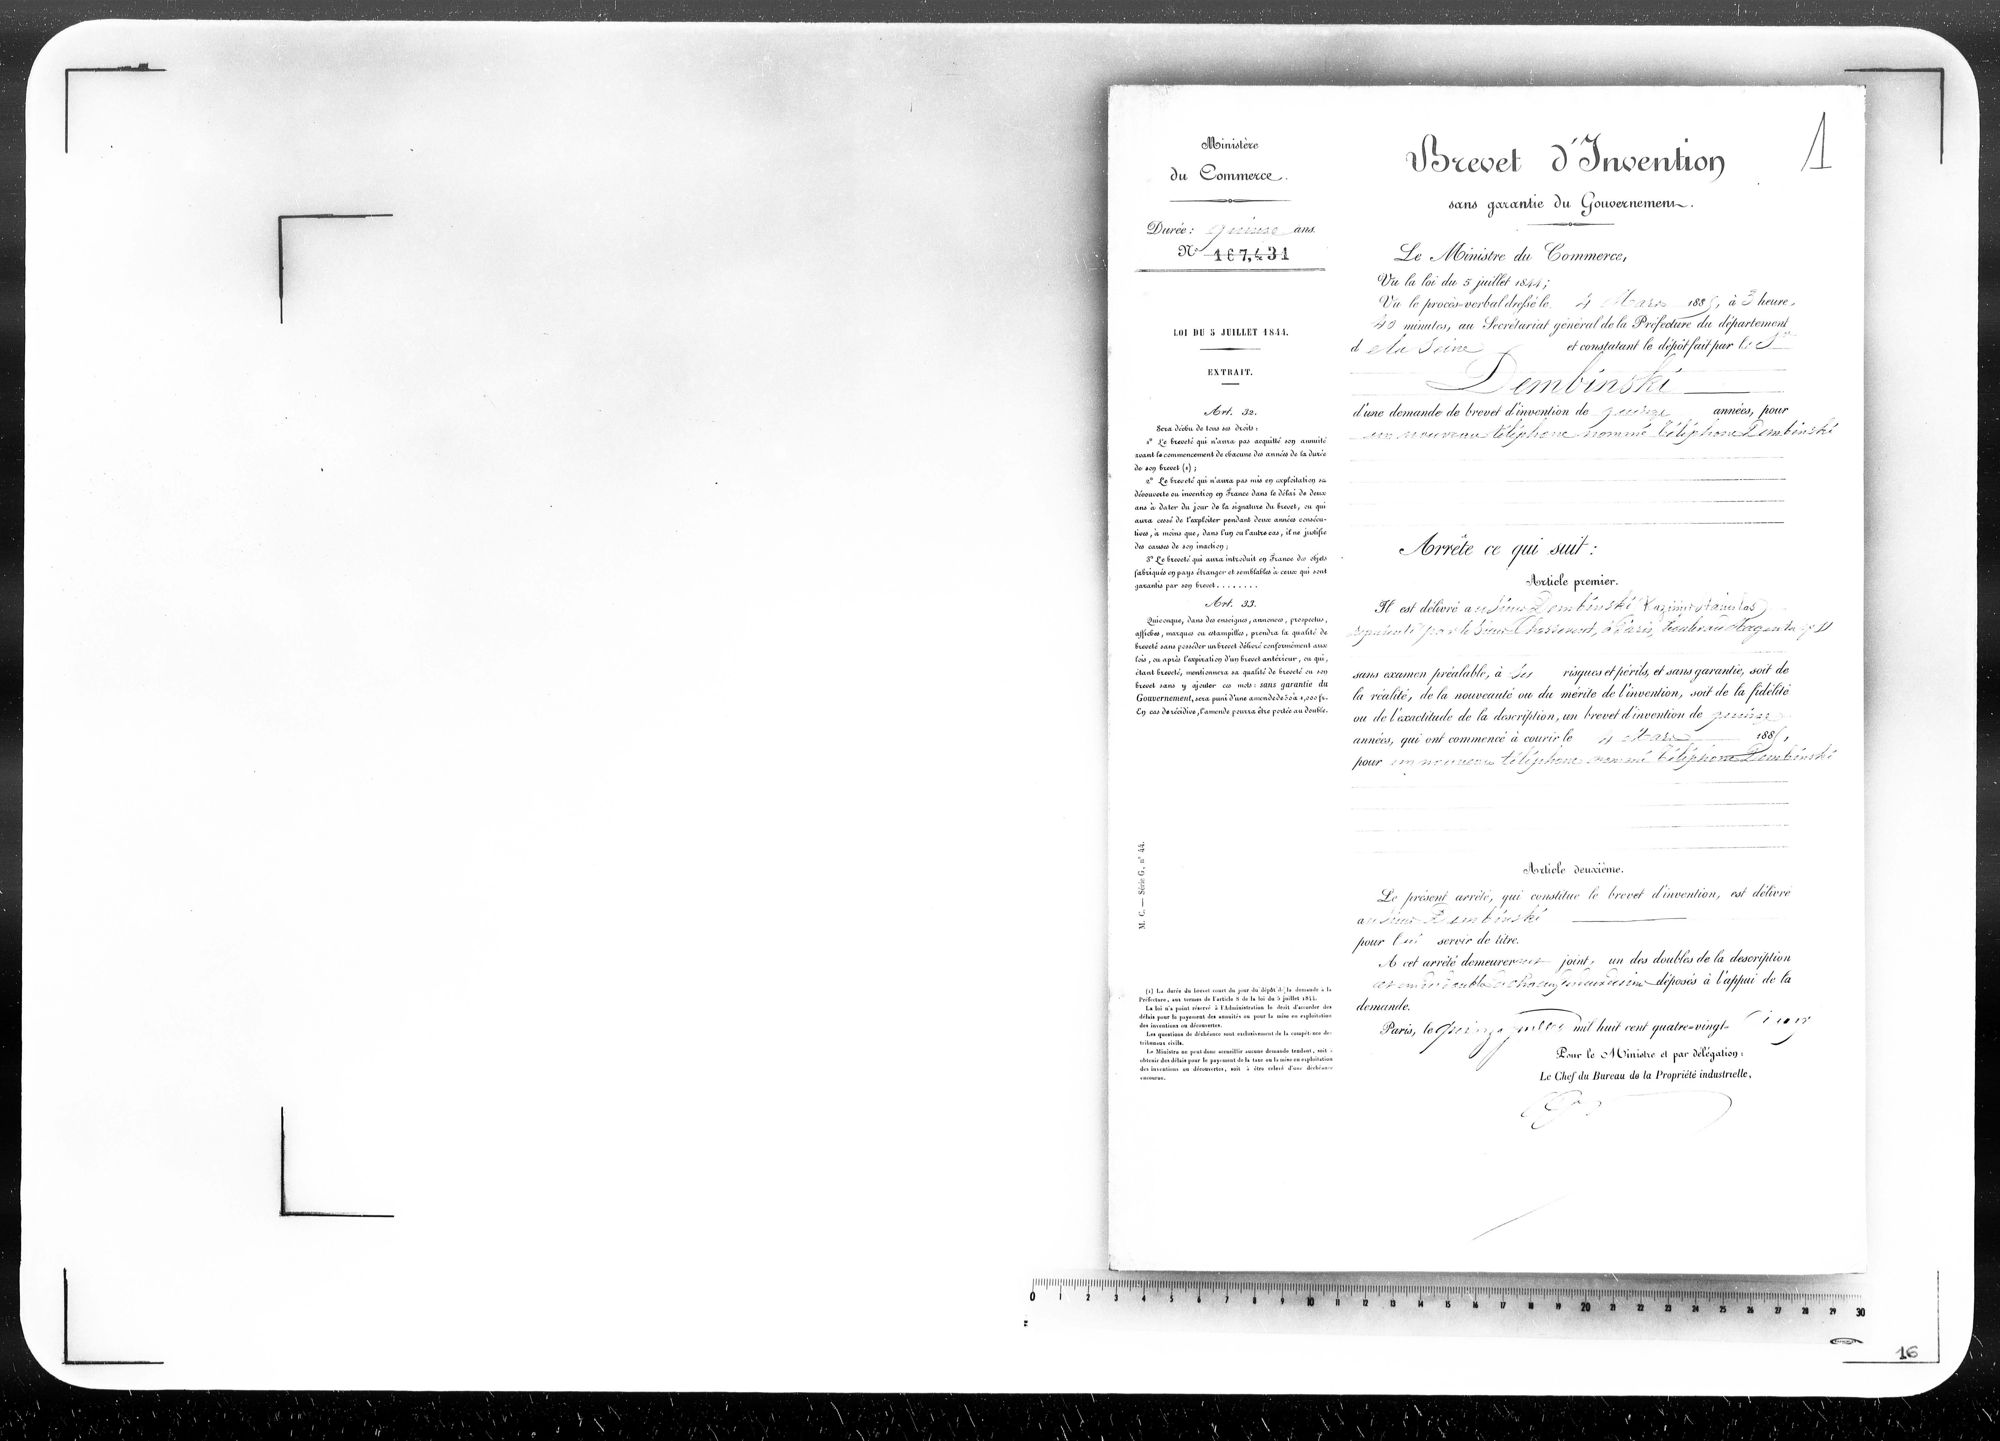 Ministère
du Commerce.
Durée : quinze ans.
N° 167,431
LOI DU 5 JUILLET 1844.
EXTRAIT.
Art. 32.
Sera déchu de tous ses droits :
1° Le breveté qui n'aura pas acquitté son annuité
avant le commencement de chacune des années de la durée
de son brevet (1) ;
2° Le breveté qui n'aura pas mis en exploitation sa
découverte ou invention en France dans le délai de deux
ans à dater du jour de la signature du brevet, ou qui
aura cessé de l'exploiter pendant deux années consécu-
tives, à moins que, dans l'un ou l'autre cas, il ne justifie
des causes de son inaction ;
3° Le breveté qui aura introduit en France des objets
fabriqués en pays étranger et semblables à ceux qui sont
garantis par son brevet ........
Art. 33.
Quiconque, dans des enseignes, annonces, prospectus,
affiches, marques ou estampilles, prendra la qualité de
breveté sans posséder un brevet délivré conformément aux
lois, ou après l'expiration d'un brevet antérieur, ou qui,
étant breveté, mentionnera sa qualité de breveté ou son
brevet sans y ajouter ces mots : sans garantie du
Gouvernement, sera puni d'une amende de 50 à 1,000 fr.
En cas de récidive, l'amende pourra être portée au double.
M. C. — Série G, n° 44.
(1) La durée du brevet court du jour du dépôt de la demande à la
Préfecture, aux termes de l'article 8 de la loi du 5 juillet 1844.
La loi n'a point réservé à l'Administration le droit d'accorder des
délais pour le payement des annuités ou pour la mise en exploitation
des inventions ou découvertes.
Les questions de déchéance sont exclusivement de la compétence des
tribunaux civils.
Le Ministre ne peut donc accueillir aucune demande tendant, soit à
obtenir des délais pour le payement de la taxe ou la mise en exploitation
des inventions ou découvertes, soit à être relevé d'une déchéance
encourue.
1
Brevet d'Invention
sans garantie du Gouvernement.
Le Ministre du Commerce,
Vu la loi du 5 juillet 1844 ;
Vu le procès-verbal dressé le 4 Mars 1885, à 3 heures
40 minutes, au Secrétariat général de la Préfecture du département
de la Seine et constatant le dépôt fait par le Sr
Dembinski
d'une demande de brevet d'invention de quinze années, pour
un nouveau téléphone nommé téléphone Dembinski
Arrête ce qui suit :
Article premier.
Il est délivré au Sieur Dembinski, Kazimir Stanislas,
représenté par le Sieur à Paris, boulevard Magenta n° 11
sans examen préalable, à ses risques et périls, et sans garantie, soit de
la réalité, de la nouveauté ou du mérite de l'invention, soit de la fidélité
ou de l'exactitude de la description, un brevet d'invention de quinze
années, qui ont commencé à courir le 4 Mars 1885,
pour un nouveau téléphone nommé téléphone Dembinski
Article deuxième.
Le présent arrêté, qui constitue le brevet d'invention, est délivré
au Sieur Dembinski
pour lui servir de titre.
A cet arrêté demeureront joints un des doubles de la description
et un des doubles déposés à l'appui de la
demande.
Paris, le quinze juillet mil huit cent quatre-vingt-cinq
Pour le Ministre et par délégation :
Le Chef du Bureau de la Propriété industrielle,
0 1 2 3 4 5 6 7 8 9 10 11 12 13 14 15 16 17 18 19 20 21 22 23 24 25 26 27 28 29 30
16